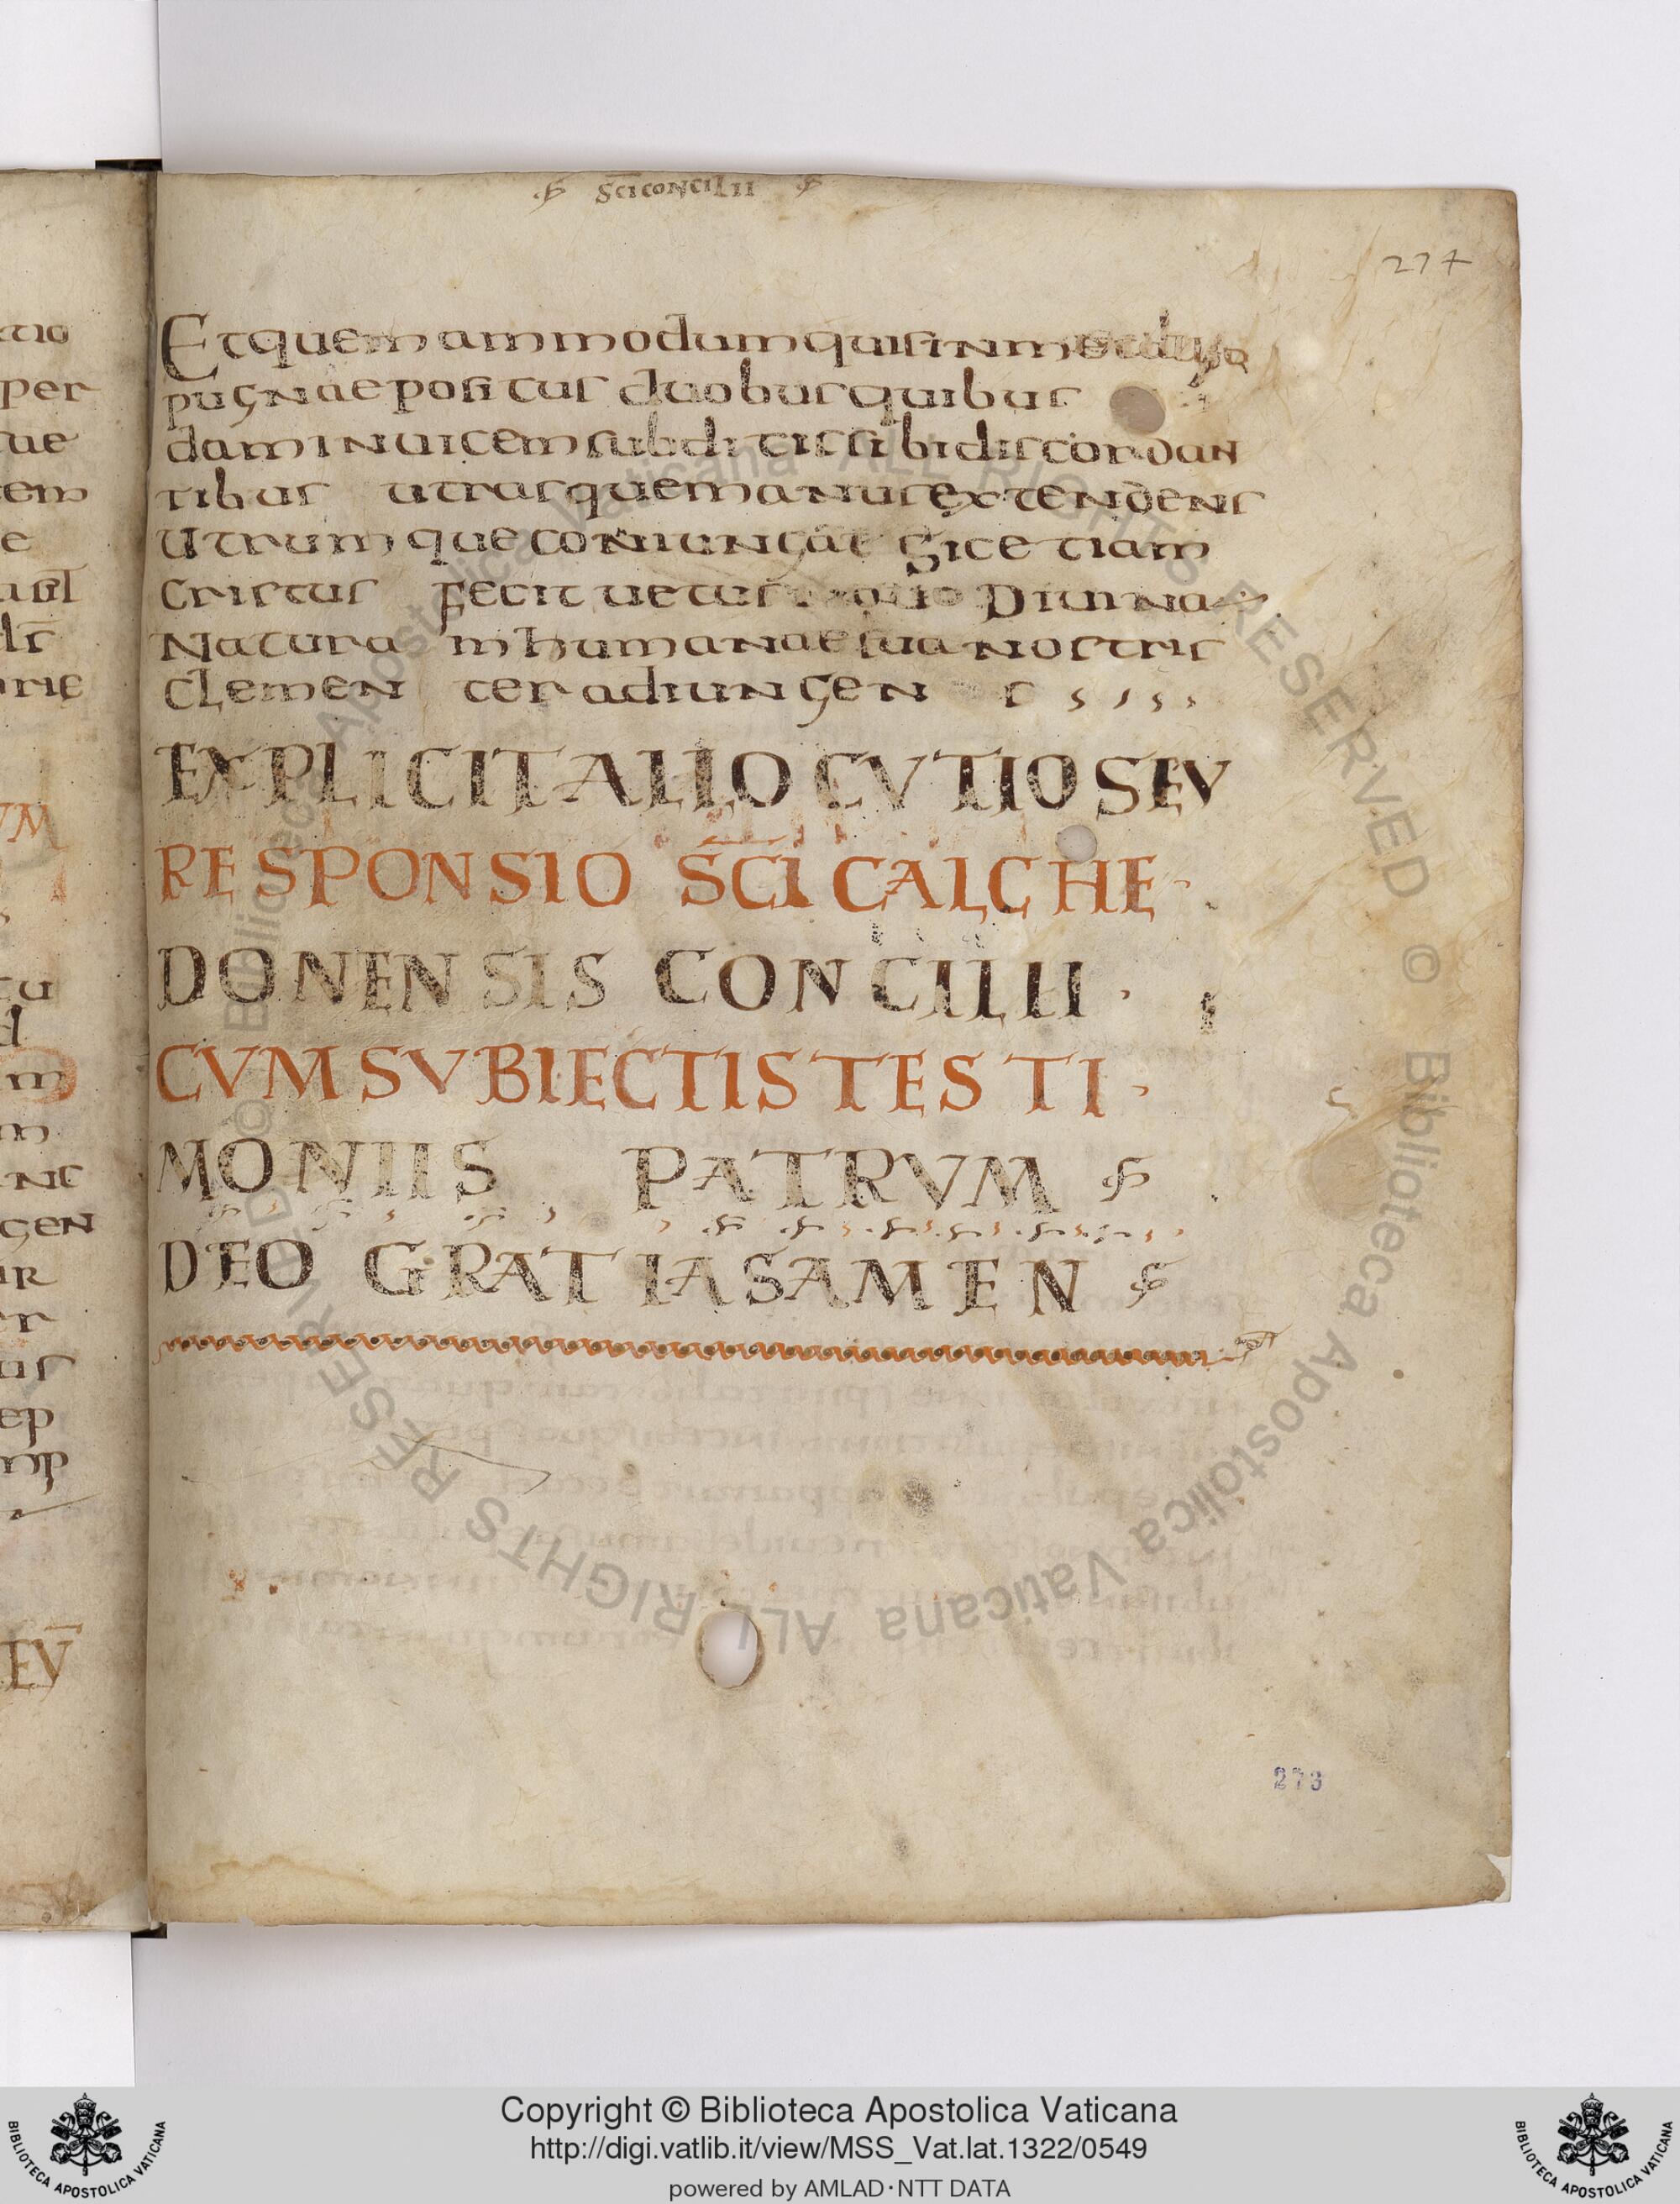 SC̅I CONCILII
274
Et quemammodum quis in me
pugnae positus duobus quibus
dam inuicem subditis sibi discordan
tibus utrasque manus extendens
utrumque coniungat sic etiam
cristus fecit uetusto diuina
naturam humanae sua nostris
clementer adiungens
EXPLICIT ALLOCVTIO SEV
RESPONSIO SC̅I CALCHE
DONENSIS CONCILII
CVM SVBIECTIS TESTI
MONIIS PATRVM
DEO GRATIAS AMEN
273
tio
per
ue
em
e
rie
VM
tu
d
m
m
ns
gen
ur
er
us
ep
mp
EV̅
Copyright © Biblioteca Apostolica Vaticana
http://digi.vatlib.it/view/MSS_Vat.lat.1322/0549
powered by AMLAD·NTT DATA
BIBLIOTECA APOSTOLICA VATICANA
BIBLIOTECA APOSTOLICA VATICANA
© Biblioteca Apostolica Vaticana ALL RIGHTS RESERVED
© Biblioteca Apostolica Vaticana ALL RIGHTS RESERVED